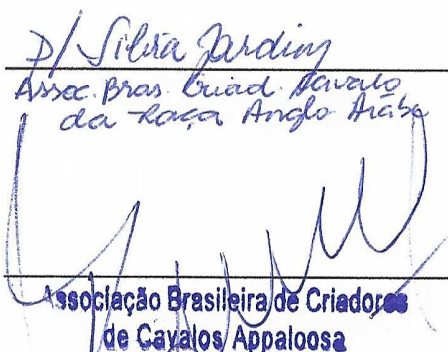 P/ Silvia Jardim
Assoc. Bras. Criad. Cavalo
da Raça Anglo Árabe
Associação Brasileira de Criadores
de Cavalos Appaloosa